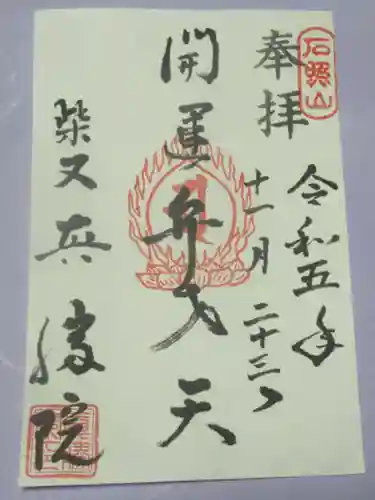 石照山
奉拝
令和五年
十一月二十三日
開運弁戈天
柴又真勝院